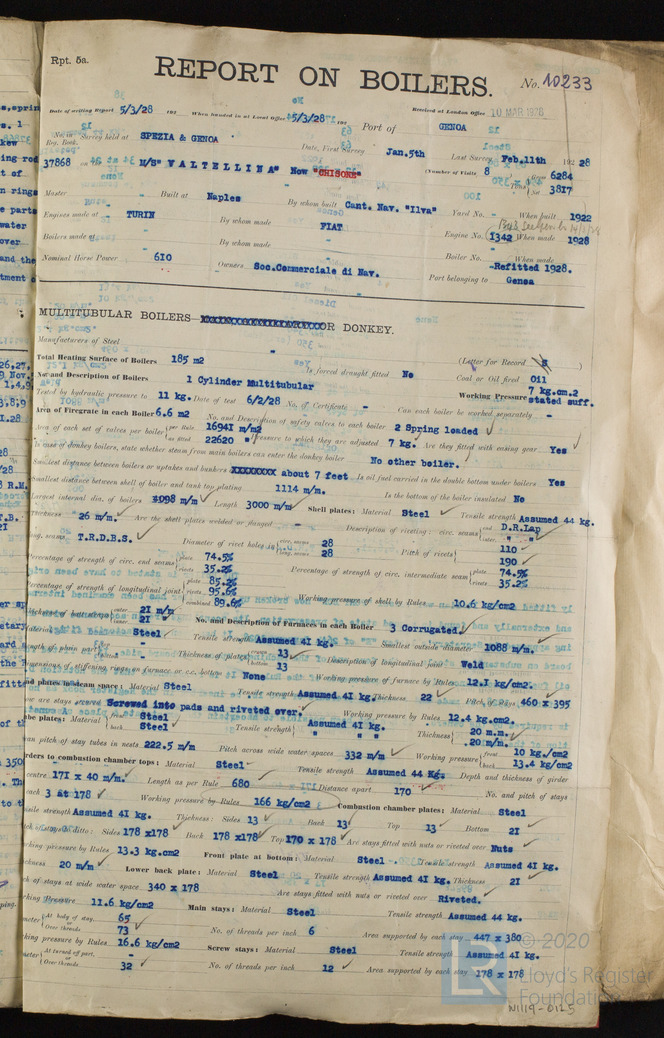 Rpt. 5a.
REPORT ON BOILERS.
No. 10233
Date of writing Report 5/3/28 192 When handed in at Local Office 5/3/28 192 Port of GENOA
Received at London Office 10 MAR 1928
No. in Reg. Book. Survey held at SPEZIA & GENOA Date, First Survey Jan.5th Last Survey Feb.11th 192 28
37868 on M/S "VALTELLINA" Now "CHISONE" (Number of Visits 8 Gross 6284
Tons Net 3817
Master - Built at Naples By whom built Cant. Nav. "Ilva" Yard No. - When built 1922
Engines made at TURIN By whom made FIAT Engine No. 1342 When made 1928
Boilers made at - By whom made - Boiler No. - When made -Refitted 1928.
Nominal Horse Power 610 Owners Soc.Commerciale di Nav. Port belonging to Genoa
MULTITUBULAR BOILERS OR DONKEY.
Manufacturers of Steel -
(Letter for Record S )
Total Heating Surface of Boilers 185 m2 Is forced draught fitted No Coal or Oil fired Oil
No. and Description of Boilers 1 Cylinder Multitubular Working Pressure 7 kg.cm.2 stated suff.
Tested by hydraulic pressure to 11 kg. Date of test 6/2/28 No. of Certificate - Can each boiler be worked separately -
Area of Firegrate in each Boiler 6.6 m2 No. and Description of safety valves to each boiler 2 Spring loaded
Area of each set of valves per boiler per Rule 16941 m/m2
as fitted 22620 " Pressure to which they are adjusted 7 kg. Are they fitted with easing gear Yes
In case of donkey boilers, state whether steam from main boilers can enter the donkey boiler No other boiler.
Smallest distance between boilers or uptakes and bunkers XXXXXXXX about 7 feet Is oil fuel carried in the double bottom under boilers Yes
Smallest distance between shell of boiler and tank top plating 1114 m/m. Is the bottom of the boiler insulated No
Largest internal dia. of boilers 4098 m/m Length 3000 m/m Shell plates: Material Steel Tensile strength Assumed 44 kg.
Thickness 26 m/m. Are the shell plates welded or flanged - Description of riveting: circ. seams end D.R.Lap
inter. " "
long. seams T.R.D.B.S. Diameter of rivet holes in circ. seams 28
long. seams 28 Pitch of rivets 110
190
Percentage of strength of circ. end seams plate 74.5%
rivets 35.2% Percentage of strength of circ. intermediate seam plate 74.5%
rivets 35.2%
Percentage of strength of longitudinal joint plate 85.2%
rivets 95.6%
combined 89.6% Working pressure of shell by Rules 10.6 kg/cm2
Thickness of butt straps outer 21 m/m
inner 21 " No. and Description of Furnaces in each Boiler 3 Corrugated.
Material Steel Tensile strength Assumed 41 kg. Smallest outside diameter 1088 m/m.
Length of plain part - Thickness of plates crown 13
bottom 13 Description of longitudinal joint Weld
Dimensions of stiffening rings on furnace or c.c. bottom None Working pressure of furnace by Rules 12.1 kg/cm2.
End plates in steam space: Material Steel Tensile strength Assumed 41 kg. Thickness 22 Pitch of stays 460 x 395
How are stays secured Screwed into pads and riveted over. Working pressure by Rules 12.4 kg.cm2.
Tube plates: Material front Steel
back Steel Tensile strength Assumed 41 kg.
" " " Thickness 20 m.m.
20 m/m.
Mean pitch of stay tubes in nests 222.5 m/m Pitch across wide water spaces 332 m/m Working pressure front 10 kg./cm2
back 13.4 kg/cm2
Girders to combustion chamber tops: Material Steel Tensile strength Assumed 44 Kg. Depth and thickness of girder
centre 171 x 40 m/m. Length as per Rule 680 Distance apart 170 No. and pitch of stays
each 3 at 178 Working pressure by Rules 166 kg/cm2 Combustion chamber plates: Material Steel
Tensile strength Assumed 41 kg. Thickness: Sides 13 Back 13 Top 13 Bottom 21
Pitch of stays to ditto: Sides 178 x178 Back 178 x178 Top 170 x 178 Are stays fitted with nuts or riveted over Nuts
Working pressure by Rules 13.3 kg.cm2 Front plate at bottom: Material Steel Tensile strength Assumed 41 kg.
Thickness 20 m/m Lower back plate: Material Steel Tensile strength Assumed 41 kg. Thickness 21
Pitch of stays at wide water space 340 x 178 Are stays fitted with nuts or riveted over Riveted.
Working Pressure 11.6 kg/cm2 Main stays: Material Steel Tensile strength Assumed 44 kg.
Diameter At body of stay, 65
Over threads 73 No. of threads per inch 6 Area supported by each stay 447 x 380
Working pressure by Rules 16.6 kg/cm2 Screw stays: Material Steel Tensile strength Assumed 41 kg.
Diameter At turned off part, -
Over threads 32 No. of threads per inch 12 Area supported by each stay 178 x 178
© 2020
Lloyd's Register
Foundation
N1119-0125